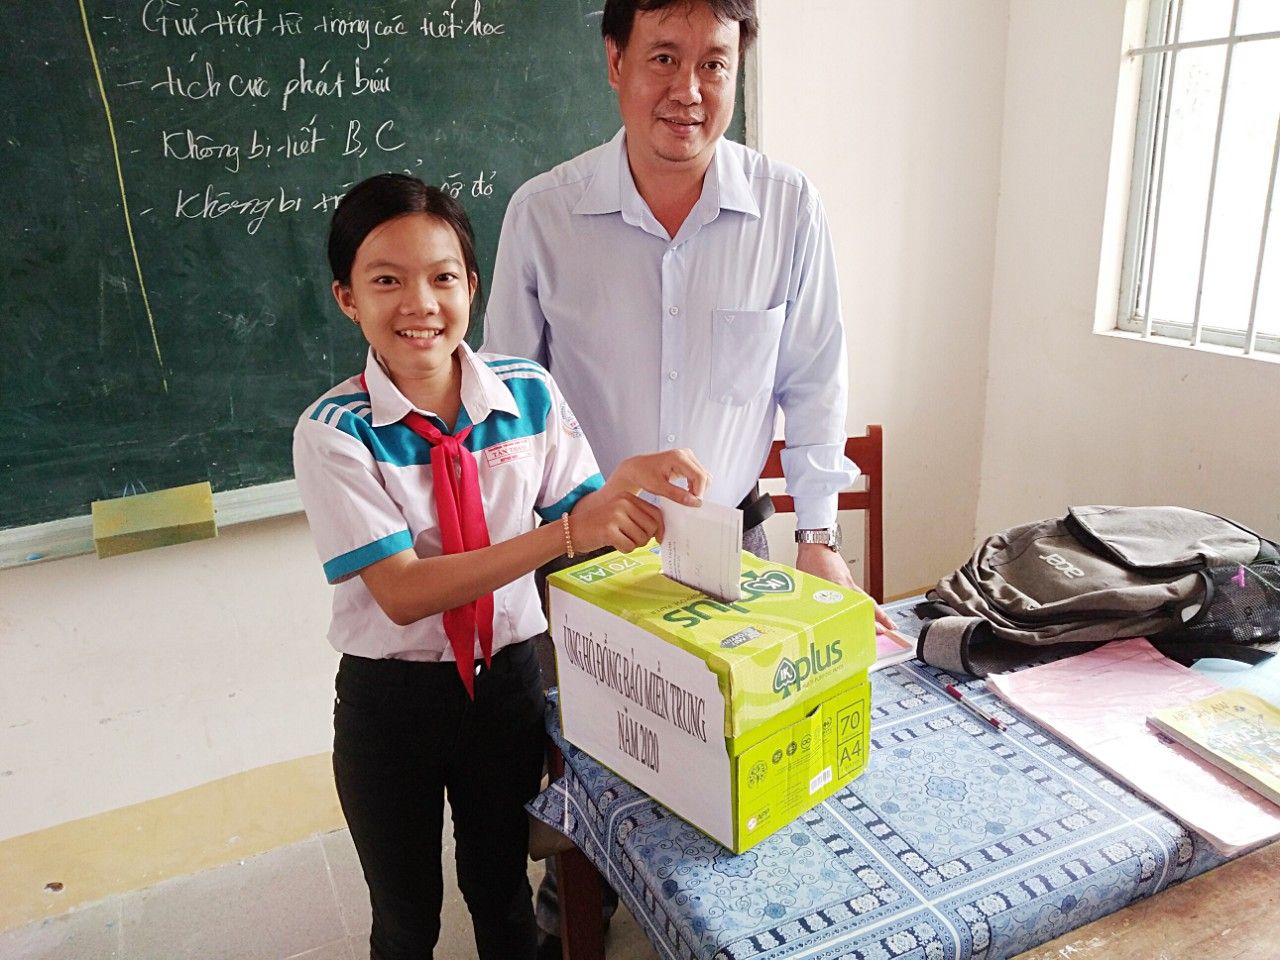 - Giữ trật tự trong các tiết học
- tích cực phát biểu
- Không bị tiết B, C
- Không bị cờ đỏ
TÂN THẠNH
70 A4
IK plus
IK plus
70
A4
ỦNG HỘ ĐỒNG BÀO MIỀN TRUNG
NĂM 2020
APP
acer